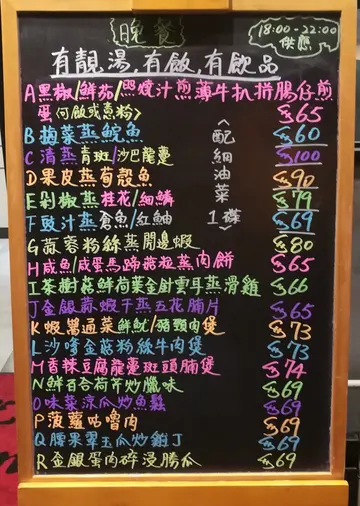 晚餐
18:00-22:00
供應
有靚湯,有飯,有飲品
A黑椒/鮮茄/燒汁煎薄牛扒拼腸仔煎
蛋(何飯或意粉) $65
B梅菜蒸鯇魚 $60
C清蒸青斑/沙巴龍躉 $100
D果皮蒸荀殼魚 $90
E剁椒蒸桂花/細鱗 $79
F豉汁蒸倉魚/紅鮋 $69
G蒜蓉粉絲蒸開邊蝦 $80
H咸魚/咸蛋馬蹄菇粒蒸肉餅 $65
I茶樹菇鮮荷葉金針雲耳蒸滑雞 $66
J金銀蒜蝦干蒸五花腩片 $65
K蝦醬通菜鮮魷/豬頸肉煲 $73
L沙嗲金菇粉絲牛肉煲 $73
M香辣豆腐龍躉斑頭腩煲 $74
N鮮百合荷芹炒臘味 $69
O味菜涼瓜炒魚鬆 $69
P菠蘿咕嚕肉 $69
Q腰果翠玉瓜炒雞丁 $69
R金銀蛋肉碎浸勝瓜 $69
〈配細油菜1碟〉